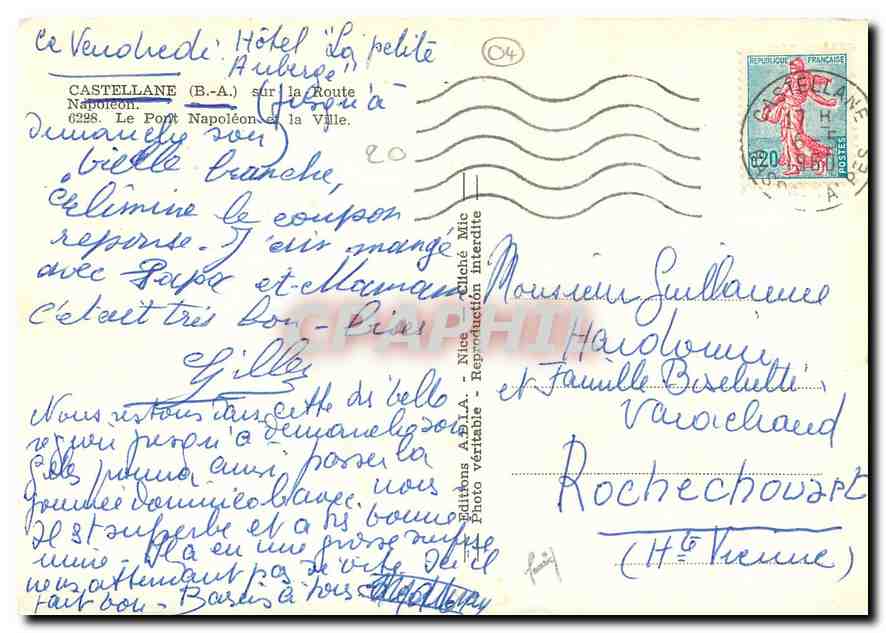 ce Vendredi. Hôtel "La petite
Auberge"
CASTELLANE (B.-A.) sur la Route
Napoléon. (jusqu'à
6228. Le Pont Napoléon et la Ville.
dimanche soir)
vieille branche,
Elimine le coupon
reponse. J'ai mangé
avec Papa et Maman
c'était très bon -
Gilles
Nous restons dans cette très belle
région jusqu'à dimanche soir
Gilles pourra ainsi passer la
journée dominicale avec nous.
Il est superbe et a très bonne
mine. Il a eu une grosse surprise
nous attendant pas si vite. Ici il
fait bon. Baisers à tous
04
20
REPUBLIQUE FRANÇAISE
0,20
POSTES
CASTELLANE
17 H
6 - 5
1960
Editions A.D.I.A. - Nice - Cliché Mic
Photo véritable - Reproduction interdite
CPAPHIL
Monsieur Guillaume
Hardouin
et Famille
Rochechouart
(Hte Vienne)